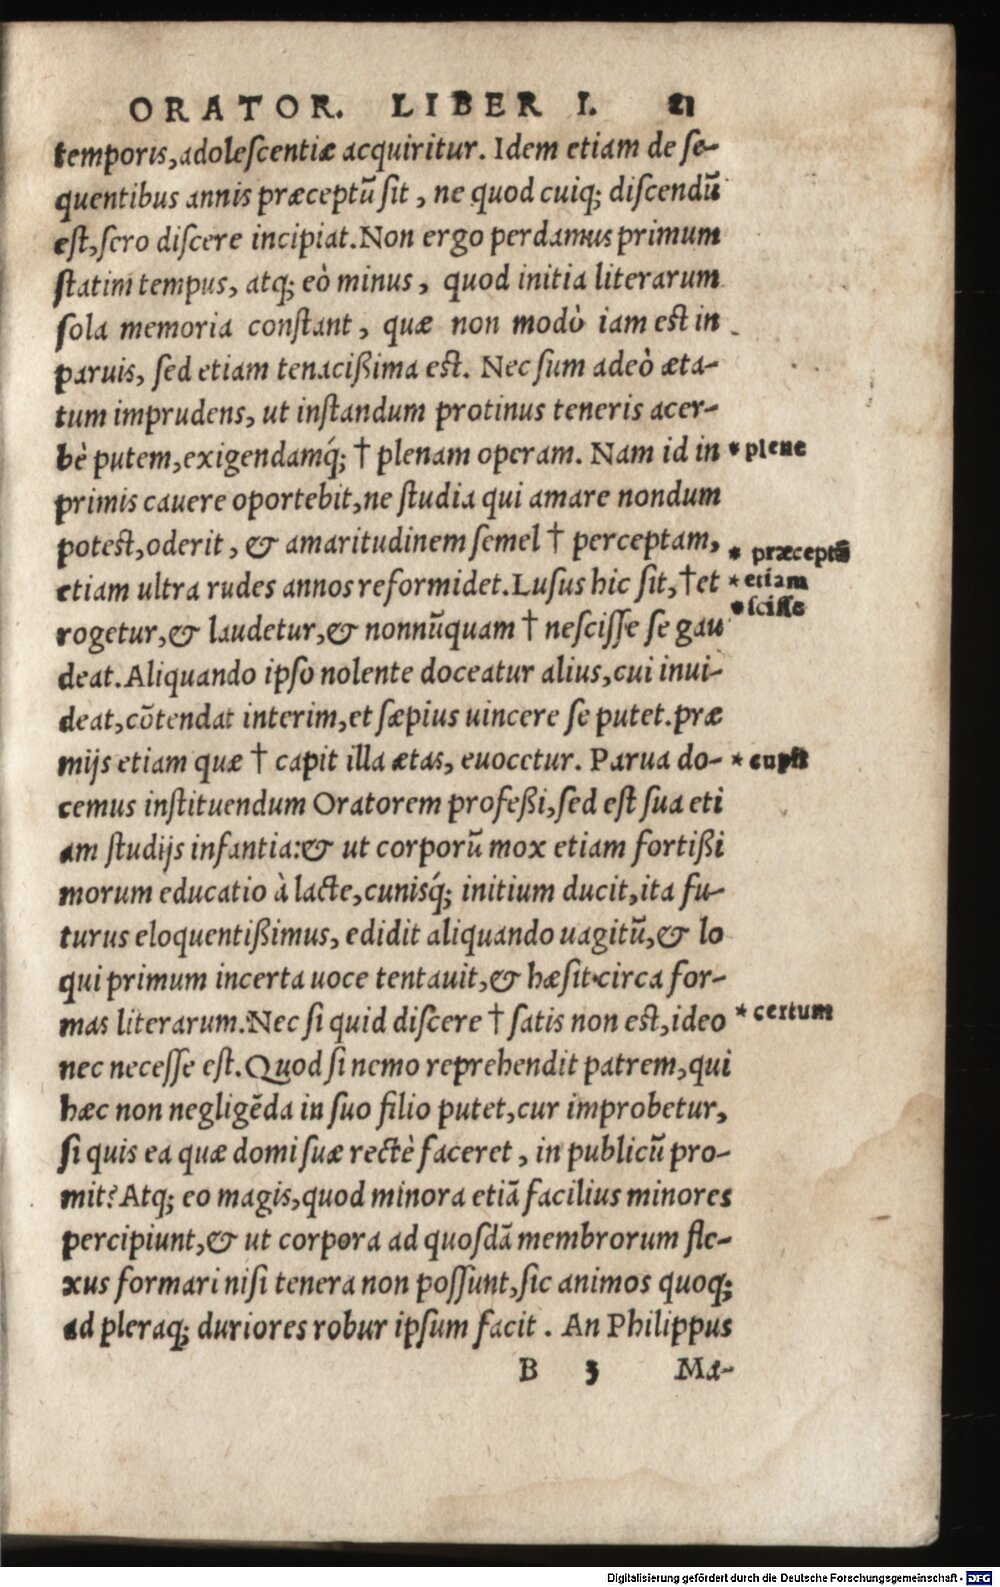 ORATOR. LIBER I. 21
temporis,adolescentiæ acquiritur. Idem etiam de se-
quentibus annis præceptū sit, ne quod cuiq; discendū
est,sero discere incipiat. Non ergo perdamus primum
statim tempus, atq; eò minus, quod initia literarum
sola memoria constant, quæ non modò iam est in
paruis, sed etiam tenacißima est. Nec sum adeò æta-
tum imprudens, ut instandum protinus teneris acer-
bè putem,exigendamq́; † plenam operam. Nam id in * plene
primis cauere oportebit,ne studia qui amare nondum
potest,oderit, & amaritudinem semel † perceptam, * præceptū
etiam ultra rudes annos reformidet. Lusus hic sit, † et * etiam
rogetur,& laudetur,& nonnūquam † nescisse se gau * scisse
deat. Aliquando ipso nolente doceatur alius,cui inui-
deat,cōtendat interim,et sæpius uincere se putet. præ
mijs etiam quæ † capit illa ætas, euocetur. Parua do- * cupit
cemus instituendum Oratorem profeßi,sed est sua eti
am studijs infantia:& ut corporū mox etiam fortißi
morum educatio à lacte,cunisq́; initium ducit,ita fu-
turus eloquentißimus, edidit aliquando uagitū,& lo
qui primum incerta uoce tentauit,& hæsit circa for-
mas literarum. Nec si quid discere † satis non est,ideo * certum
nec necesse est. Quod si nemo reprehendit patrem,qui
hæc non negligēda in suo filio putet,cur improbetur,
si quis ea quæ domi suæ rectè faceret, in publicū pro-
mit? Atq; eo magis,quod minora etiā facilius minores
percipiunt,& ut corpora ad quosdā membrorum fle-
xus formari nisi tenera non possunt,sic animos quoq;
ad pleraq; duriores robur ipsum facit. An Philippus
B 3 Ma-
Digitalisierung gefördert durch die Deutsche Forschungsgemeinschaft - DFG